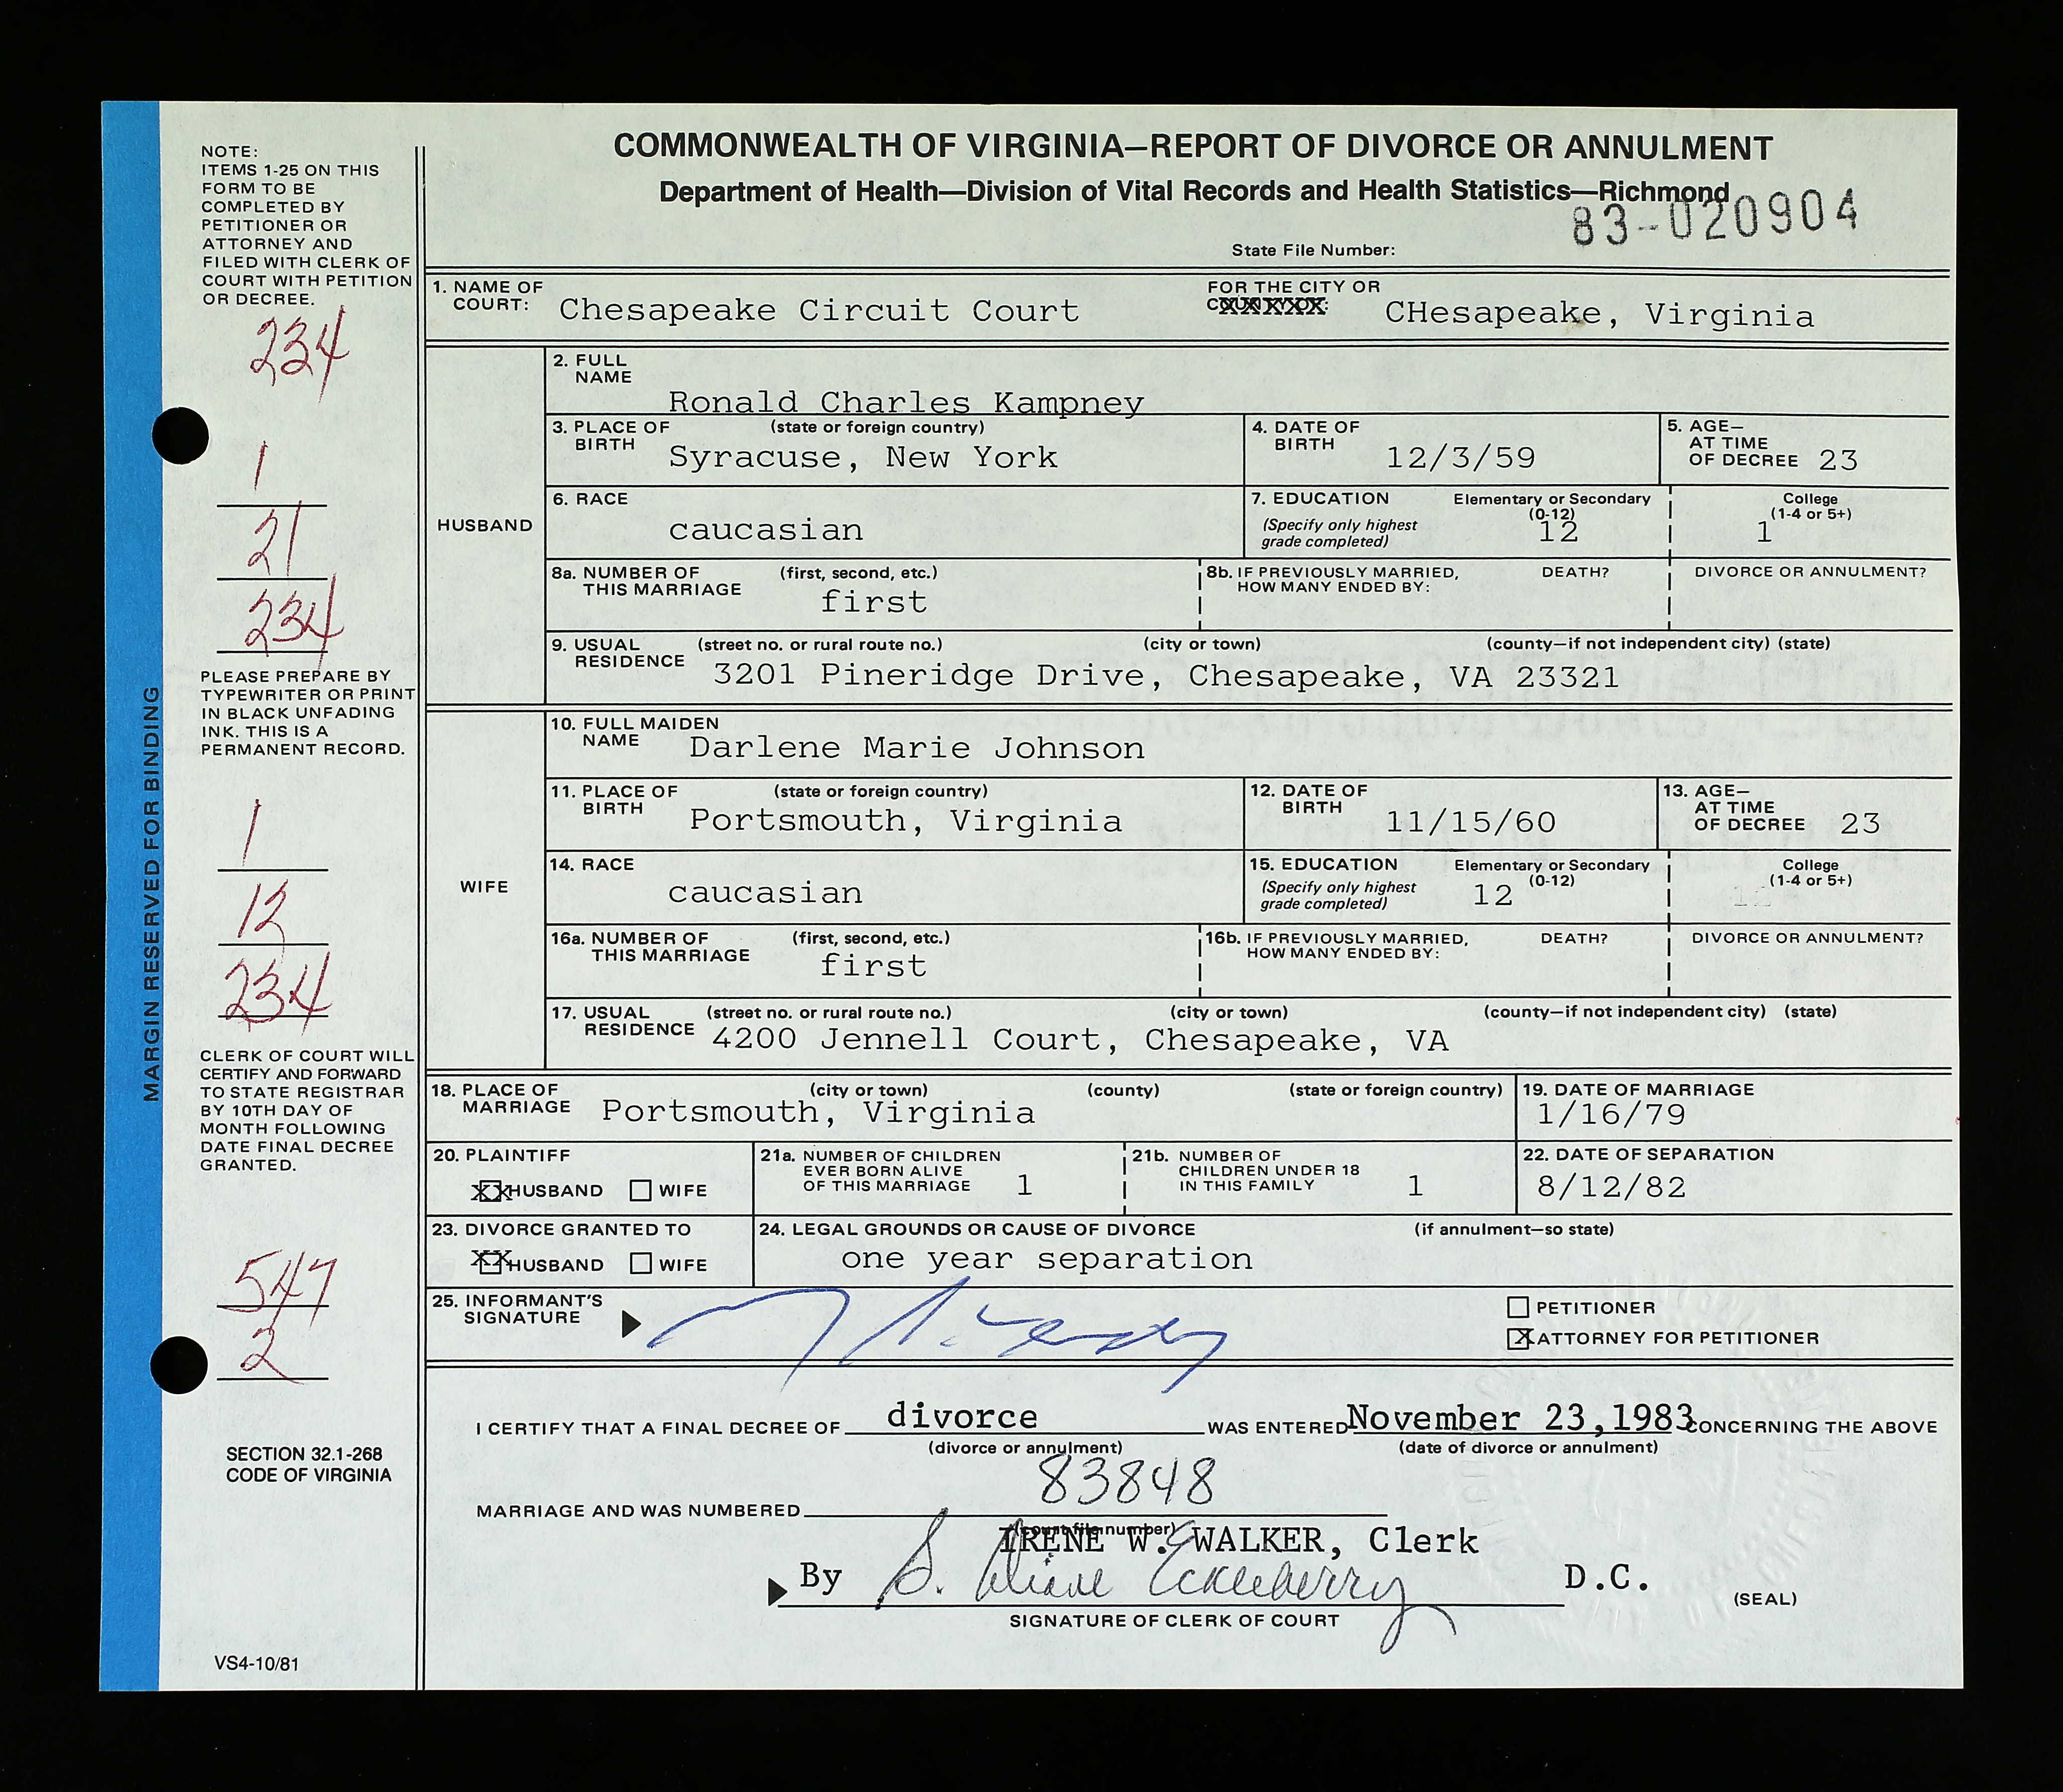 COMMONWEALTH OF VIRGINIA—REPORT OF DIVORCE OR ANNULMENT
Department of Health—Division of Vital Records and Health Statistics—Richmond
State File Number: 83-020904
NOTE:
ITEMS 1-25 ON THIS
FORM TO BE
COMPLETED BY
PETITIONER OR
ATTORNEY AND
FILED WITH CLERK OF
COURT WITH PETITION
OR DECREE.
234
1
21
234
PLEASE PREPARE BY
TYPEWRITER OR PRINT
IN BLACK UNFADING
INK. THIS IS A
PERMANENT RECORD.
1
12
234
CLERK OF COURT WILL
CERTIFY AND FORWARD
TO STATE REGISTRAR
BY 10TH DAY OF
MONTH FOLLOWING
DATE FINAL DECREE
GRANTED.
547
2
SECTION 32.1-268
CODE OF VIRGINIA
VS4-10/81
MARGIN RESERVED FOR BINDING
1. NAME OF COURT: Chesapeake Circuit Court FOR THE CITY OR CHesapeake, Virginia
HUSBAND
2. FULL NAME Ronald Charles Kampney
3. PLACE OF BIRTH (state or foreign country) Syracuse, New York
4. DATE OF BIRTH 12/3/59
5. AGE— AT TIME OF DECREE 23
6. RACE caucasian
7. EDUCATION (Specify only highest grade completed) Elementary or Secondary (0-12) 12 College (1-4 or 5+) 1
8a. NUMBER OF THIS MARRIAGE (first, second, etc.) first
8b. IF PREVIOUSLY MARRIED, HOW MANY ENDED BY: DEATH? DIVORCE OR ANNULMENT?
9. USUAL RESIDENCE (street no. or rural route no.) (city or town) (county—if not independent city) (state)
3201 Pineridge Drive, Chesapeake, VA 23321
WIFE
10. FULL MAIDEN NAME Darlene Marie Johnson
11. PLACE OF BIRTH (state or foreign country) Portsmouth, Virginia
12. DATE OF BIRTH 11/15/60
13. AGE— AT TIME OF DECREE 23
14. RACE caucasian
15. EDUCATION (Specify only highest grade completed) Elementary or Secondary (0-12) 12 College (1-4 or 5+)
16a. NUMBER OF THIS MARRIAGE (first, second, etc.) first
16b. IF PREVIOUSLY MARRIED, HOW MANY ENDED BY: DEATH? DIVORCE OR ANNULMENT?
17. USUAL RESIDENCE (street no. or rural route no.) (city or town) (county—if not independent city) (state)
4200 Jennell Court, Chesapeake, VA
18. PLACE OF MARRIAGE (city or town) (county) (state or foreign country) Portsmouth, Virginia
19. DATE OF MARRIAGE 1/16/79
20. PLAINTIFF XX HUSBAND WIFE
21a. NUMBER OF CHILDREN EVER BORN ALIVE OF THIS MARRIAGE 1
21b. NUMBER OF CHILDREN UNDER 18 IN THIS FAMILY 1
22. DATE OF SEPARATION 8/12/82
23. DIVORCE GRANTED TO XX HUSBAND WIFE
24. LEGAL GROUNDS OR CAUSE OF DIVORCE (if annulment—so state) one year separation
25. INFORMANT'S SIGNATURE
PETITIONER
X ATTORNEY FOR PETITIONER
I CERTIFY THAT A FINAL DECREE OF divorce WAS ENTERED November 23,1983 CONCERNING THE ABOVE
(divorce or annulment) (date of divorce or annulment)
MARRIAGE AND WAS NUMBERED 83848
(court file number)
IRENE W. WALKER, Clerk
By S. Diane Eckleberry D.C.
SIGNATURE OF CLERK OF COURT
(SEAL)